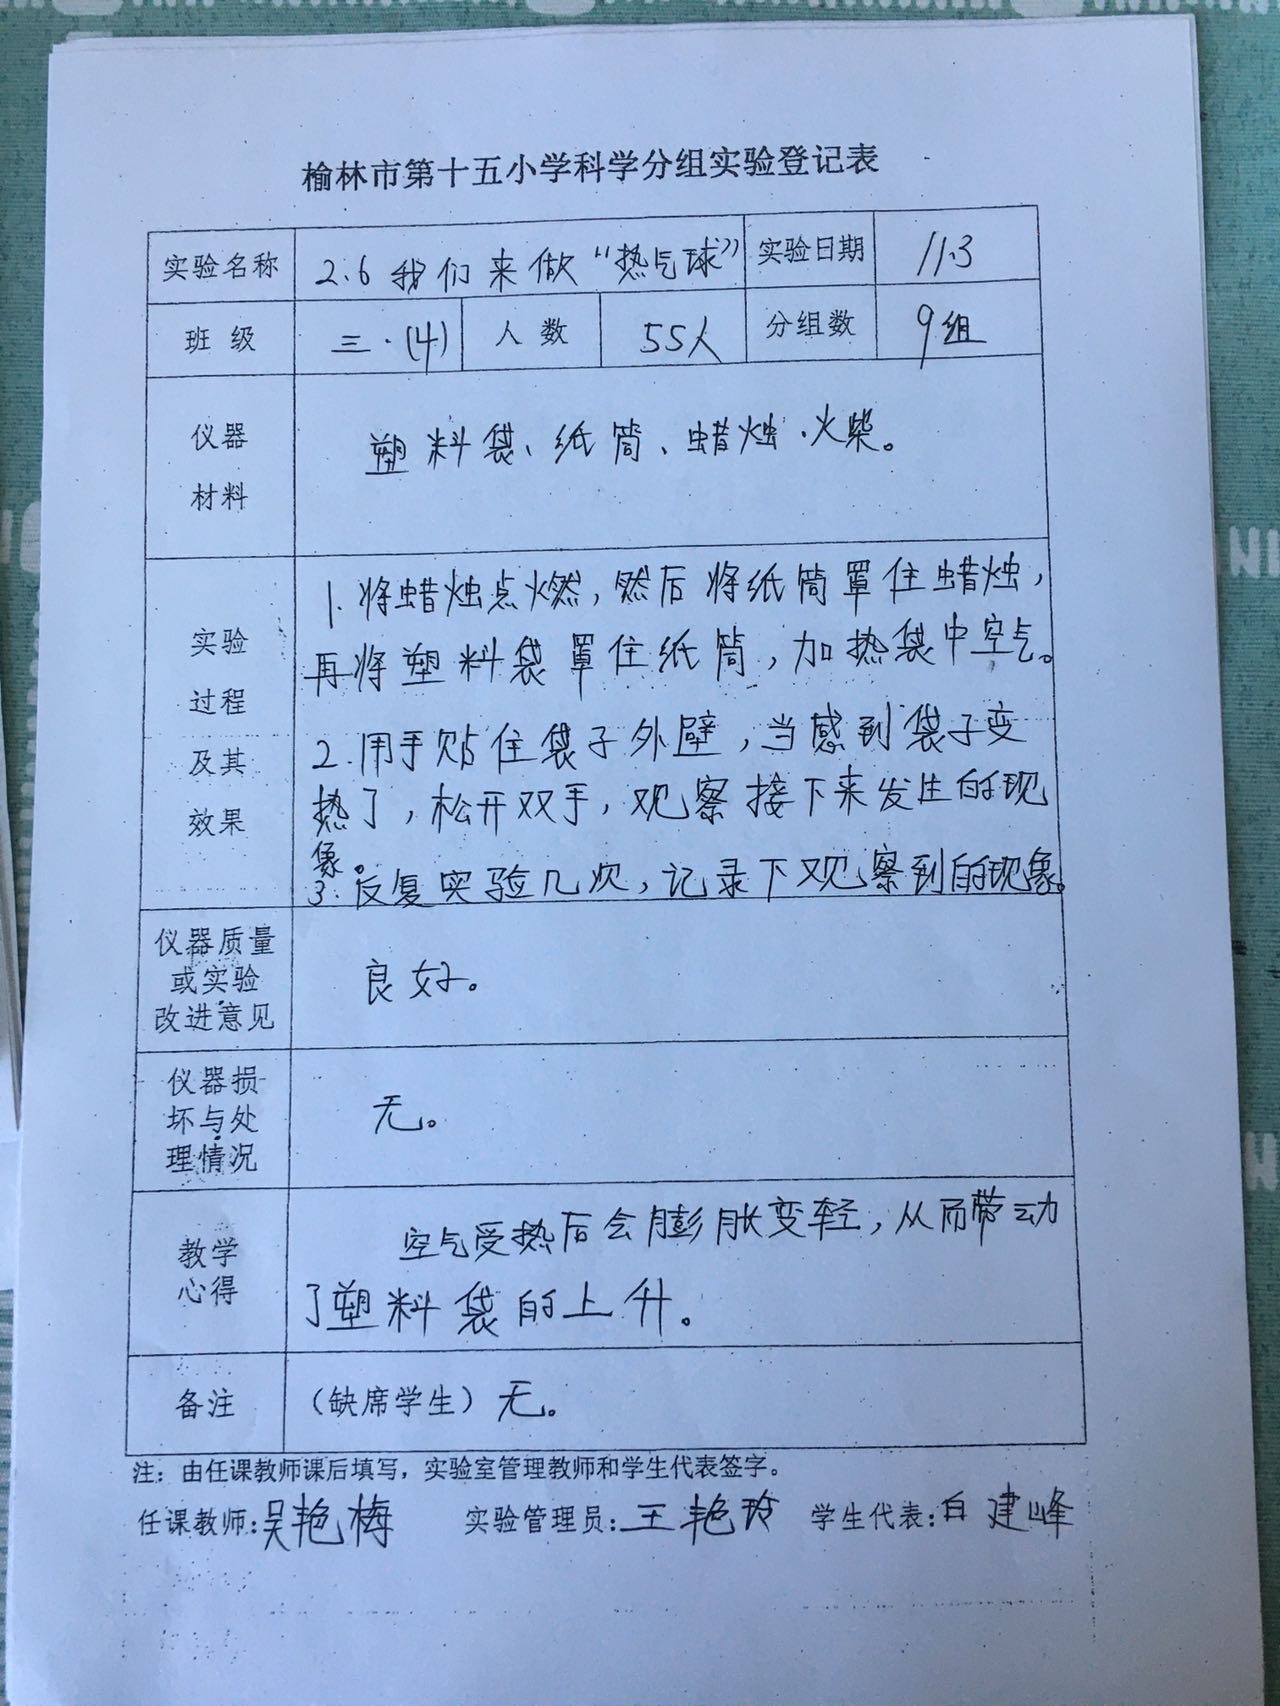 榆林市第十五小学科学分组实验登记表
实验名称 2.6 我们来做“热气球” 实验日期 11.3
班 级 三·(4) 人 数 55人 分组数 9组
仪器
材料
塑料袋、纸筒、蜡烛、火柴。
实验
过程
及其
效果
1. 将蜡烛点燃,然后将纸筒罩住蜡烛,
再将塑料袋罩住纸筒,加热袋中空气。
2. 用手贴住袋子外壁,当感到袋子变
热了,松开双手,观察接下来发生的现
象。
3. 反复实验几次,记录下观察到的现象。
仪器质量
或实验
改进意见
良好。
仪器损
坏与处
理情况
无。
教学
心得
空气受热后会膨胀变轻,从而带动
了塑料袋的上升。
备注 (缺席学生) 无。
注:由任课教师课后填写,实验室管理教师和学生代表签字。
任课教师:吴艳梅 实验管理员:王艳玲 学生代表:白建峰